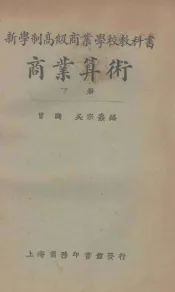 新學制高級商業學校教科書
商業算術
下册
曾瀛 吳宗燾編
上海商務印書館發行